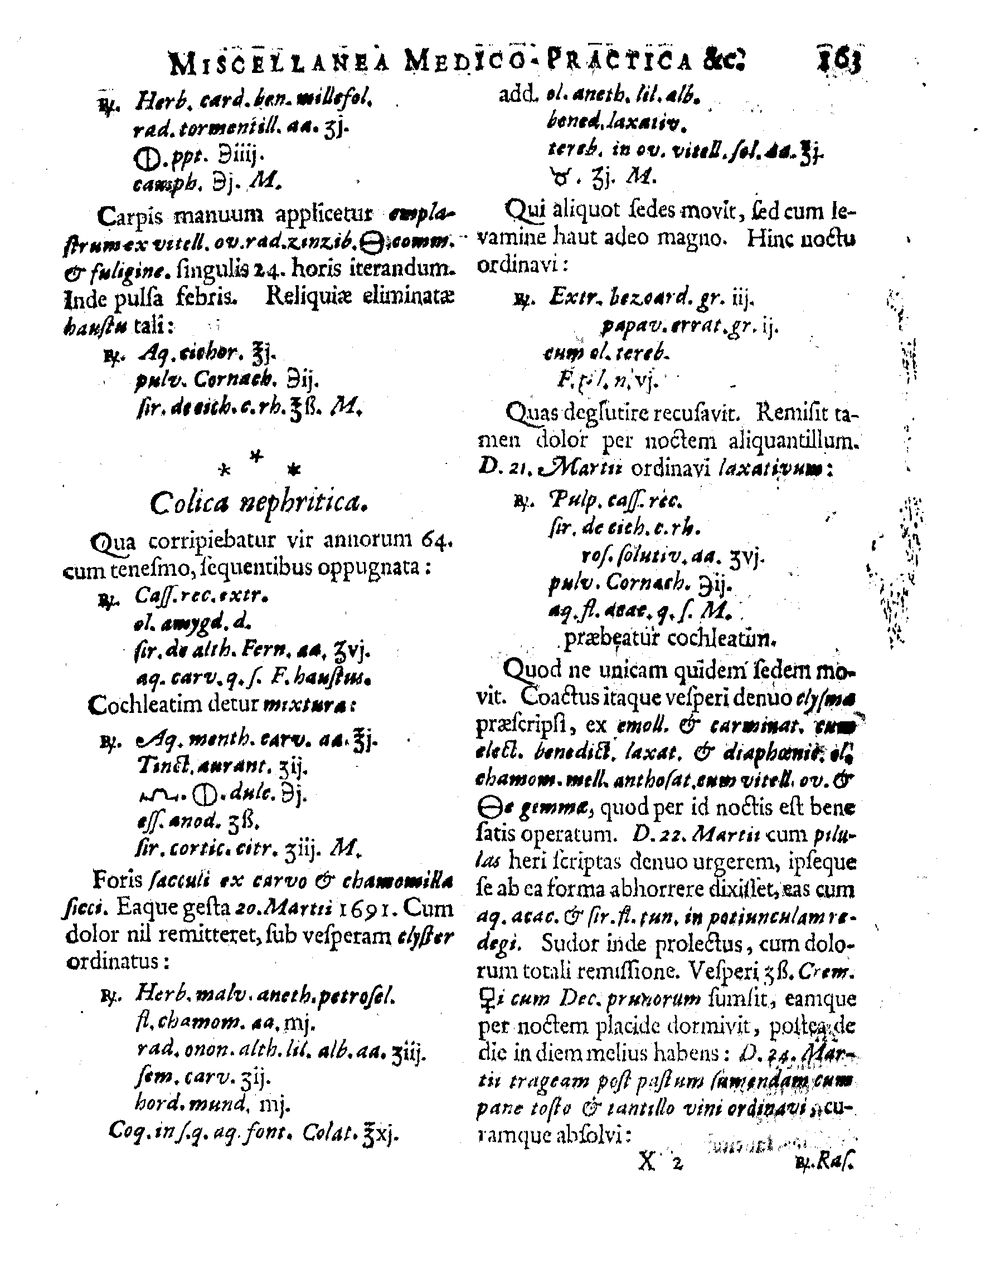 MISCELLANEA MEDICO-PRACTICA &c. 163
℞. Herb. card. ben. millefol.
rad. tormentill. aa. ʒj.
🜕. ppt. ℈iiij.
camph. ℈j. M.
Carpis manuum applicetur empla-
ſtrum ex vitell. ov. rad. zinzib. 🜔 comm.
& fuligine. ſingulis 24. horis iterandum.
Inde pulſa febris. Reliquiæ eliminatæ
hauſtu tali:
℞. Aq. cichor. ℥j.
pulv. Cornach. ℈ij.
ſir. de cich. c. rh. ℥ß. M.
* * *
Colica nephritica.
Qua corripiebatur vir annorum 64.
cum teneſmo, ſequentibus oppugnata:
℞. Caſſ. rec. extr.
ol. amygd. d.
ſir. de alth. Fern. aa. ʒvj.
aq. carv. q. ſ. F. hauſtus.
Cochleatim detur mixtura:
℞. Aq. menth. carv. aa. ℥j.
Tinct. aurant. ʒij.
🜕. dulc. ℈j.
eſſ. anod. ʒß.
ſir. cortic. citr. ʒiij. M.
Foris ſacculi ex carvo & chamomilla
ſicci. Eaque geſta 20. Martii 1691. Cum
dolor nil remitteret, ſub veſperam clyſter
ordinatus:
℞. Herb. malv. aneth. petroſel.
fl. chamom. aa. mj.
rad. onon. alth. lil. alb. aa. ʒiij.
ſem. carv. ʒij.
hord. mund. mj.
Coq. in ſ. q. aq. font. Colat. ℥xj.
add. ol. aneth. lil. alb.
bened. laxativ.
tereb. in ov. vitell. ſol. aa. ℥j.
♉. ʒj. M.
Qui aliquot ſedes movit, ſed cum le-
vamine haut adeo magno. Hinc noctu
ordinavi:
℞. Extr. bezoard. gr. iij.
papav. errat. gr. ij.
cum ol. tereb.
F. pil. n. vj.
Quas deglutire recuſavit. Remiſit ta-
men dolor per noctem aliquantillum.
D. 21. Martii ordinavi laxativum:
℞. Pulp. caſſ. rec.
ſir. de cich. c. rh.
roſ. ſolutiv. aa. ʒvj.
pulv. Cornach. ℈ij.
aq. fl. acac. q. ſ. M.
præbeatur cochleatim.
Quod ne unicam quidem ſedem mo-
vit. Coactus itaque veſperi denuo clyſma
præſcripſi, ex emoll. & carminat. cum
elect. benedict. laxat. & diaphœnic. ol.
chamom. mell. anthoſat. cum vitell. ov. &
🜔e gemmæ, quod per id noctis eſt bene
ſatis operatum. D. 22. Martii cum pilu-
las heri ſcriptas denuo urgerem, ipſeque
ſe ab ea forma abhorrere dixiſſet, eas cum
aq. acac. & ſir. fl. tun. in potiunculam re-
degi. Sudor inde prolectus, cum dolo-
rum totali remiſſione. Veſperi ʒß. Crem.
♀i cum Dec. prunorum ſumſit, eamque
per noctem placide dormivit, poſtea de
die in diem melius habens: D. 24. Mar-
tii trageam poſt paſtum ſumendam cum
pane toſto & tantillo vini ordinavi, cu-
ramque abſolvi:
X 2 ℞. Raſ.